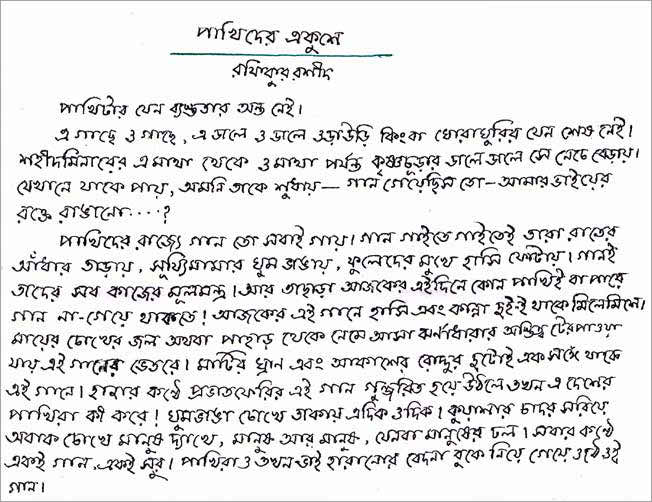 পাখিদের একুশে
রফিকুর রশীদ
পাখিটার যেন ব্যস্ততার অন্ত নেই।
এ গাছে ও গাছে, এ ডালে ও ডালে ওড়াউড়ি কিংবা ঘোরাঘুরির যেন শেষ নেই।
শহীদমিনারের এ মাথা থেকে ও মাথা পর্যন্ত কৃষ্ণচূড়ার ডালে ডালে সে নেচে বেড়ায়।
যেখানে যাকে পায়, অমনি তাকে শুধায়— গান গেয়েছিস তো– আমার ভাইয়ের
রক্তে রাঙানো....?
পাখিদের রাজ্যে গান তো সবাই গায়। গান গাইতে গাইতেই তারা রাতের
আঁধার তাড়ায়, সূয্যিমামার ঘুম ভাঙায়, ফুলেদের মুখে হাসি ফোটায়। গানই
তাদের সব কাজের মূলমন্ত্র। আর তাছাড়া আজকের এইদিনে কোন পাখিই বা পারে
গান না-গেয়ে থাকতে! আজকের এই গানে হাসি এবং কান্না দুই-ই থাকে মিলেমিশে।
মায়ের চোখের জল অথবা পাহাড় থেকে নেমে আসা ঝর্নাধারার অস্তিত্ব টের পাওয়া
যায় এই গানের ভেতরে। মাটির ঘ্রাণ এবং আকাশের রোদ্দুর দুটোই এক সঙ্গে থাকে
এই গানে। হাজার কণ্ঠে প্রভাতফেরির এই গান গুঞ্জরিত হয়ে উঠলে তখন এ দেশের
পাখিরা কী করে! ঘুমভাঙা চোখে তাকায় এদিক ওদিক। কুয়াশার চাদর সরিয়ে
অবাক চোখে মানুষ দ্যাখে, মানুষ আর মানুষ, যেনবা মানুষের ঢল। সবার কণ্ঠে
একই গান, একই সুর। পাখিরাও তখন ভাই হারানোর বেদনা বুকে নিয়ে গেয়ে ওঠে ওই
গান।